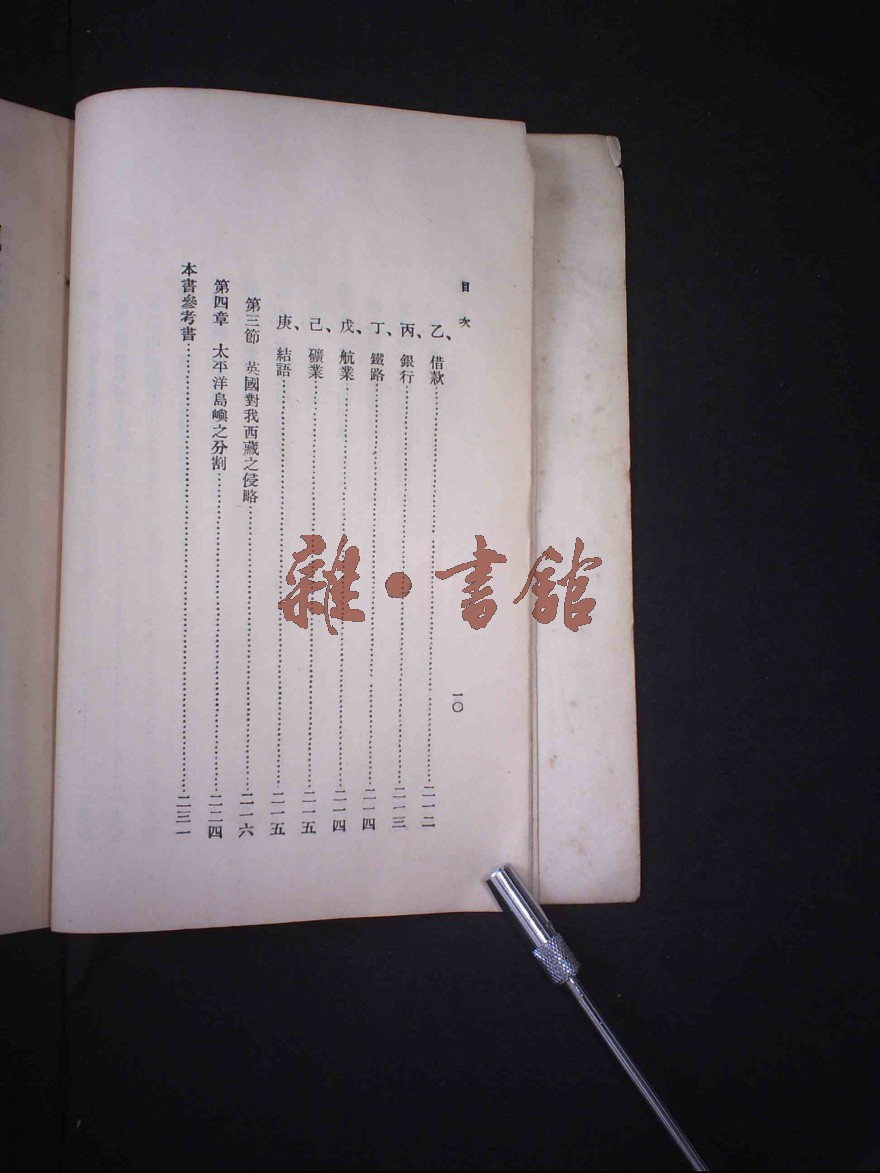 目次
一〇
乙、借款……二一二
丙、銀行……二一三
丁、鐵路……二一四
戊、航業……二一四
己、礦業……二一五
庚、結語……二一五
第三節　英國對我西藏之侵略……二一六
第四章　太平洋島嶼之分割……二二四
本書參考書……二三一
雜·書館